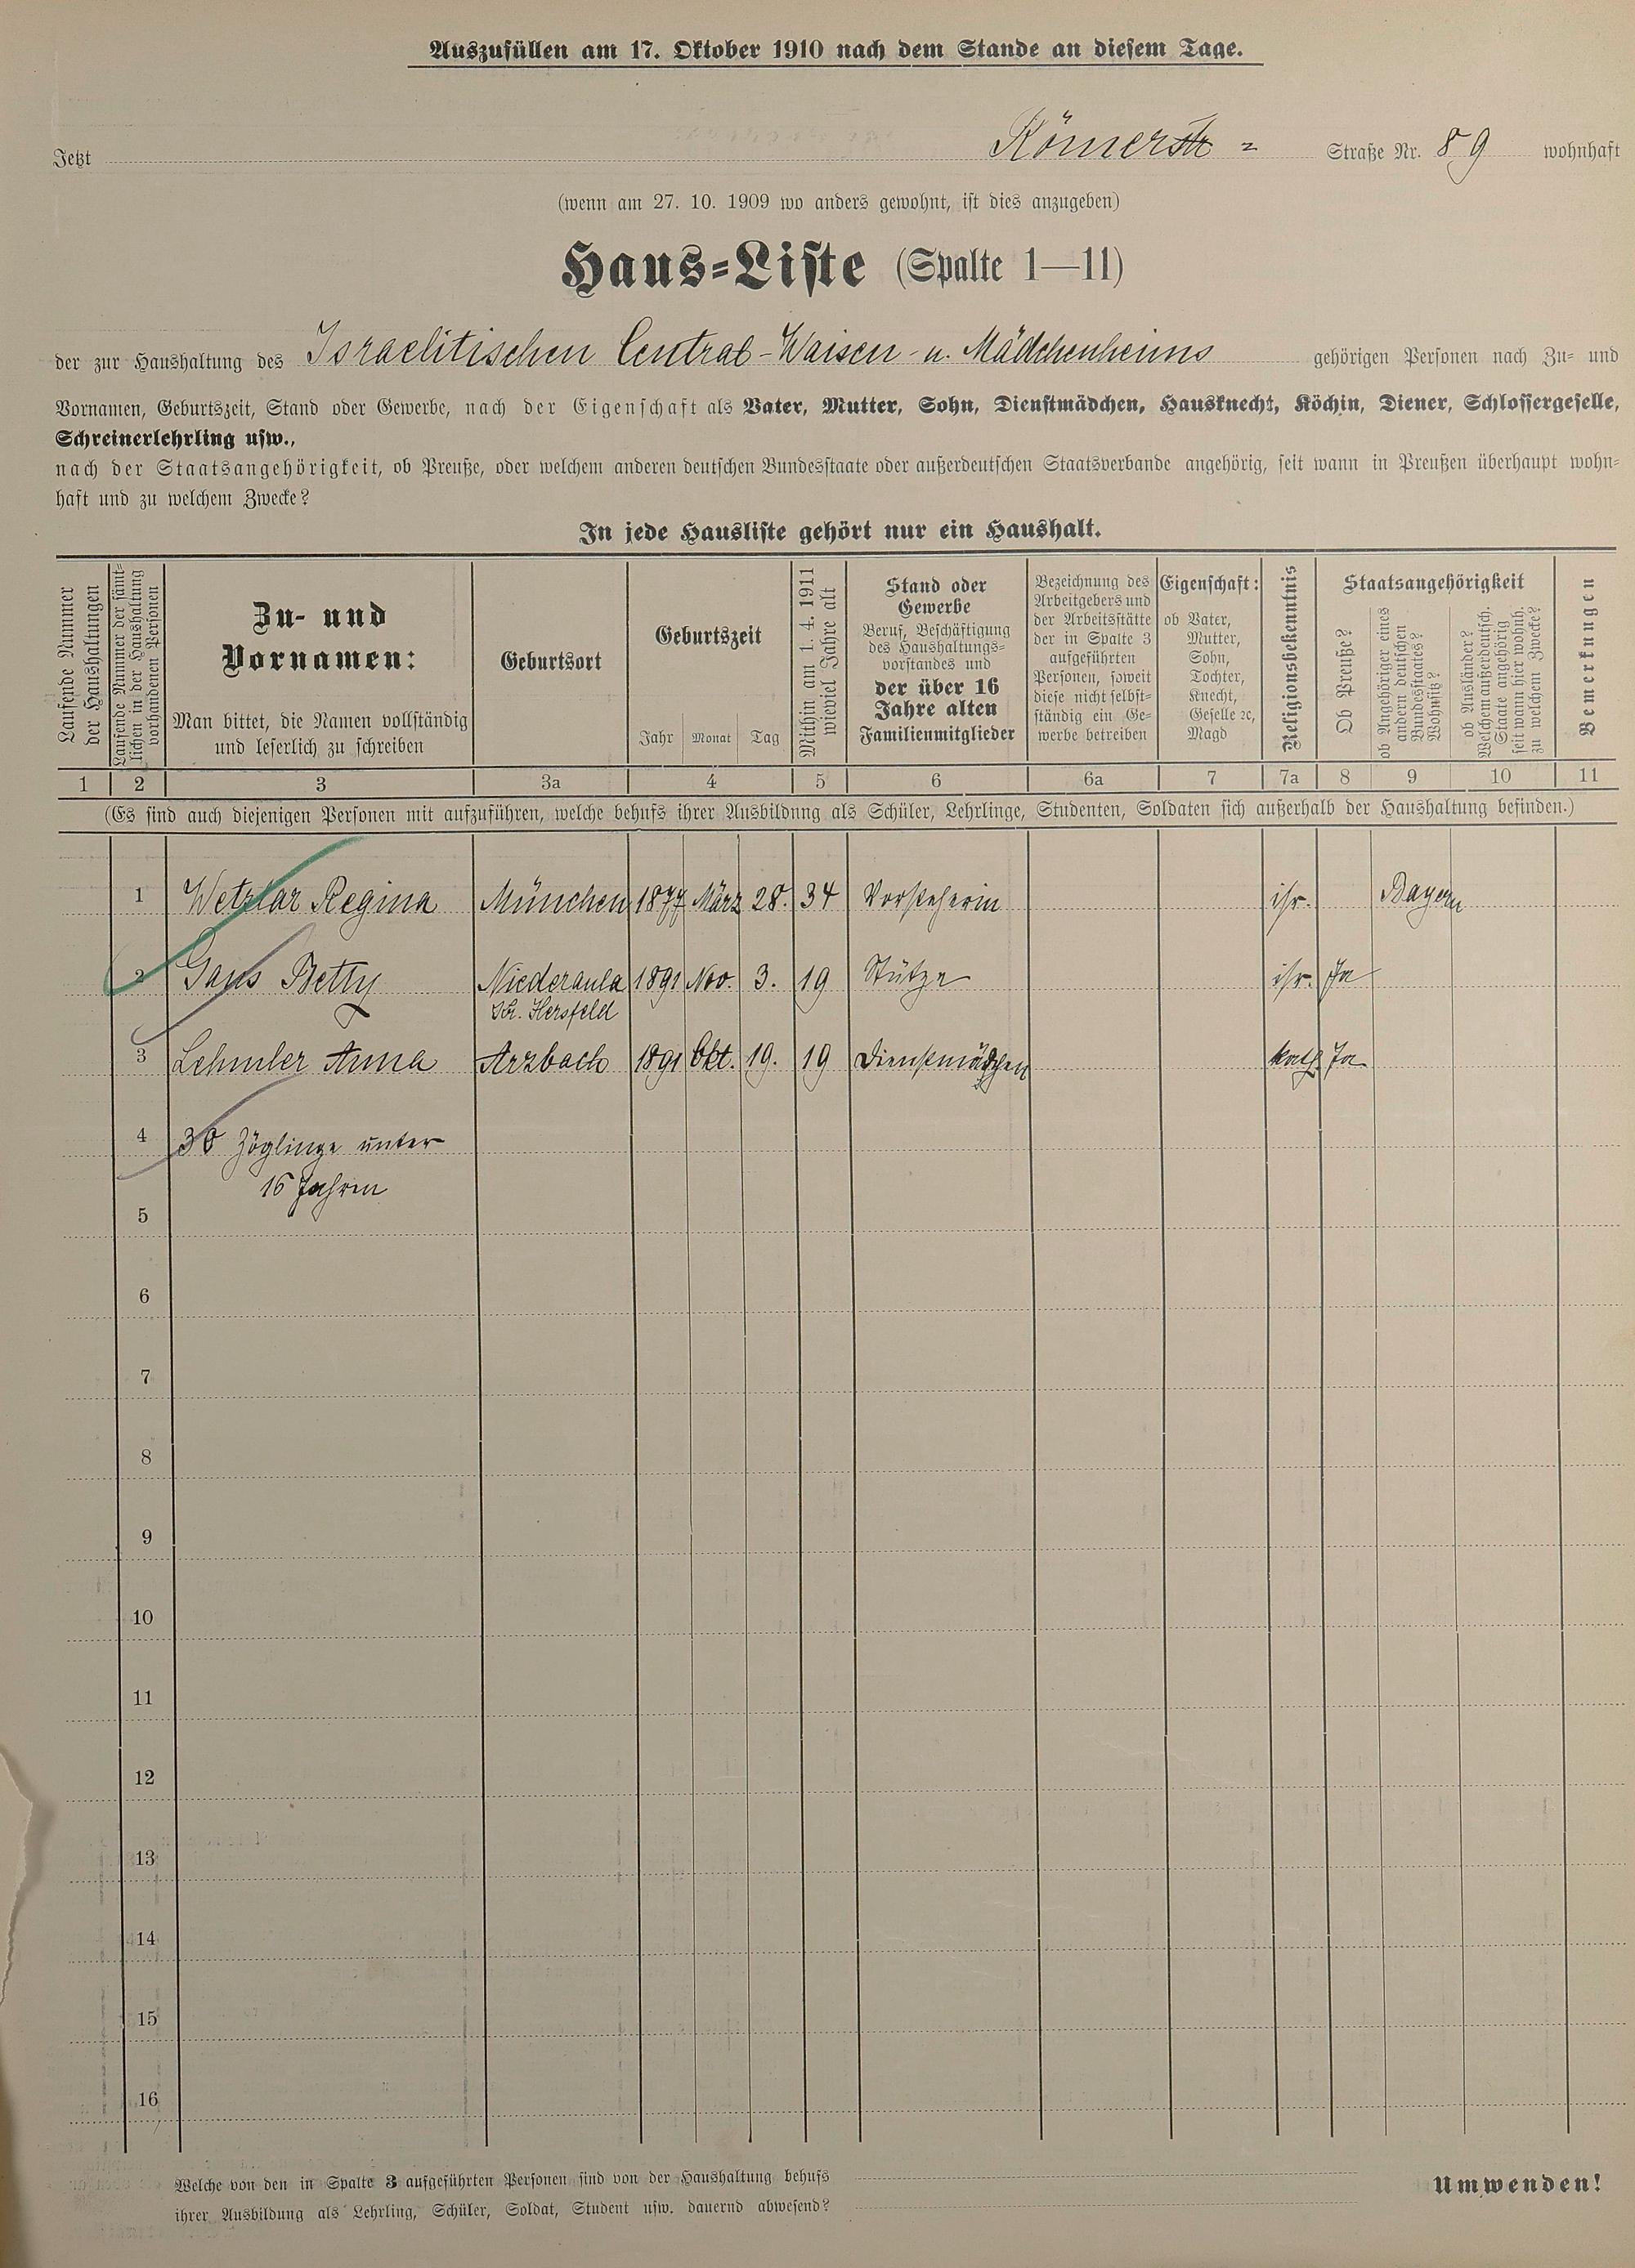 Auszufüllen am 17. Oktober 1910 nach dem Stande an diesem Tage.
Jetzt Römerstr = Straße Nr. 89 wohnhaft
(wenn am 27. 10. 1909 wo anders gewohnt, ist dies anzugeben)
Haus=Liste (Spalte 1—11)
der zur Haushaltung des Israelitischen Central-Waisen- u. Mädchenheims gehörigen Personen nach Zu= und
Vornamen, Geburtszeit, Stand oder Gewerbe, nach der Eigenschaft als Vater, Mutter, Sohn, Dienstmädchen, Hausknecht, Köchin, Diener, Schlossergeselle,
Schreinerlehrling usw.,
nach der Staatsangehörigkeit, ob Preuße, oder welchem anderen deutschen Bundesstaate oder außerdeutschen Staatsverbande angehörig, seit wann in Preußen überhaupt wohn=
haft und zu welchem Zwecke?
In jede Hausliste gehört nur ein Haushalt.
Laufende Nummer
der Haushaltungen
Laufende Nummer der sämt=
lichen in der Haushaltung
vorhandenen Personen
Zu- und
Vornamen:
Man bittet, die Namen vollständig
und leserlich zu schreiben
Geburtsort
Geburtszeit
Jahr Monat Tag
Mithin am 1. 4. 1911
wieviel Jahre alt
Stand oder
Gewerbe
Beruf, Beschäftigung
des Haushaltungs=
vorstandes und
der über 16
Jahre alten
Familienmitglieder
Bezeichnung des
Arbeitgebers und
der Arbeitsstätte
der in Spalte 3
aufgeführten
Personen, soweit
diese nicht selbst=
ständig ein Ge=
werbe betreiben
Eigenschaft:
ob Vater,
Mutter,
Sohn,
Tochter,
Knecht,
Geselle ꝛc,
Magd
Religionsbekenntnis
Staatsangehörigkeit
Ob Preuße?
ob Angehöriger eines
andern deutschen
Bundesstaates?
Wohnsitz?
ob Ausländer?
Welchem außerdeutsch.
Staate angehörig
seit wann hier wohnh.
zu welchem Zwecke?
Bemerkungen
1 2 3 3a 4 5 6 6a 7 7a 8 9 10 11
(Es sind auch diejenigen Personen mit aufzuführen, welche behufs ihrer Ausbildung als Schüler, Lehrlinge, Studenten, Soldaten sich außerhalb der Haushaltung befinden.)
1 Wetzlar Regina München 1877 März 28. 34 Vorsteherin isr. Bayern
2 Gans Betty Niederaula 1891 Nov. 3. 19 Stütze isr. Ja
Kr. Hersfeld
3 Lehmler Anna Arzbach 1891 Okt. 19. 19 Dienstmädchen kath. Ja
4 30 Zöglinge unter
16 Jahren
5
6
7
8
9
10
11
12
13
14
15
16
Welche von den in Spalte 3 aufgeführten Personen sind von der Haushaltung behufs
ihrer Ausbildung als Lehrling, Schüler, Soldat, Student usw. dauernd abwesend?
Umwenden!